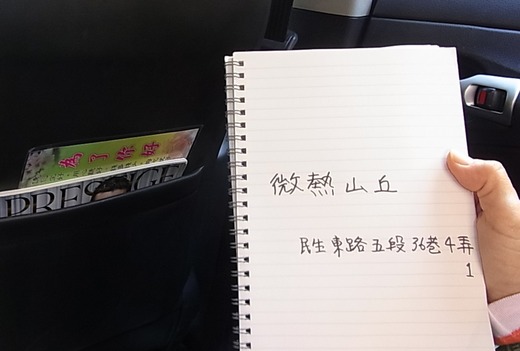 為了你好
PRESTIGE
微熱山丘
民生東路五段36巷4弄
1